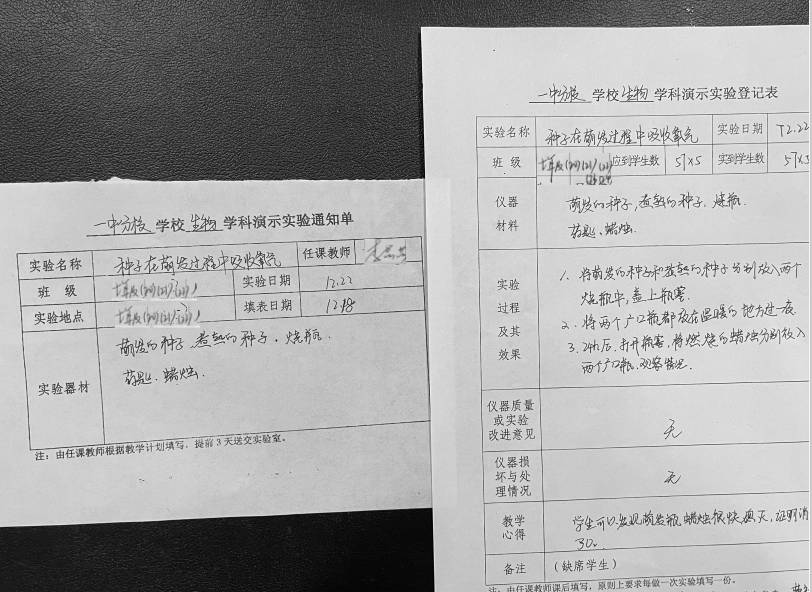 一中分校 学校 生物 学科演示实验通知单
实验名称 种子在萌发过程中吸收氧气 任课教师
班 级 实验日期 12.22
实验地点 填表日期 12.18
实验器材
萌发的种子、煮熟的种子、烧瓶
药匙、蜡烛.
注：由任课教师根据教学计划填写，提前3天送交实验室。
一中分校 学校 生物 学科演示实验登记表
实验名称 种子在萌发过程中吸收氧气 实验日期 12.22
班 级 应到学生数 57×5 实到学生数 57×5
仪器材料
萌发的种子，煮熟的种子、烧瓶
药匙、蜡烛.
实验过程及其效果
1. 将萌发的种子和煮熟的种子分别放入两个
烧瓶中，盖上瓶塞.
2. 将两个广口瓶都放在温暖的地方过一夜
3. 24h后，打开瓶塞，将燃烧的蜡烛分别放入
两个广口瓶，观察情况.
仪器质量或实验改进意见 无
仪器损坏与处理情况 无
教学心得
学生可以发现萌发瓶蜡烛很快熄灭，证明消
备注 （缺席学生）
注：由任课教师课后填写，原则上要求每做一次实验填写一份。